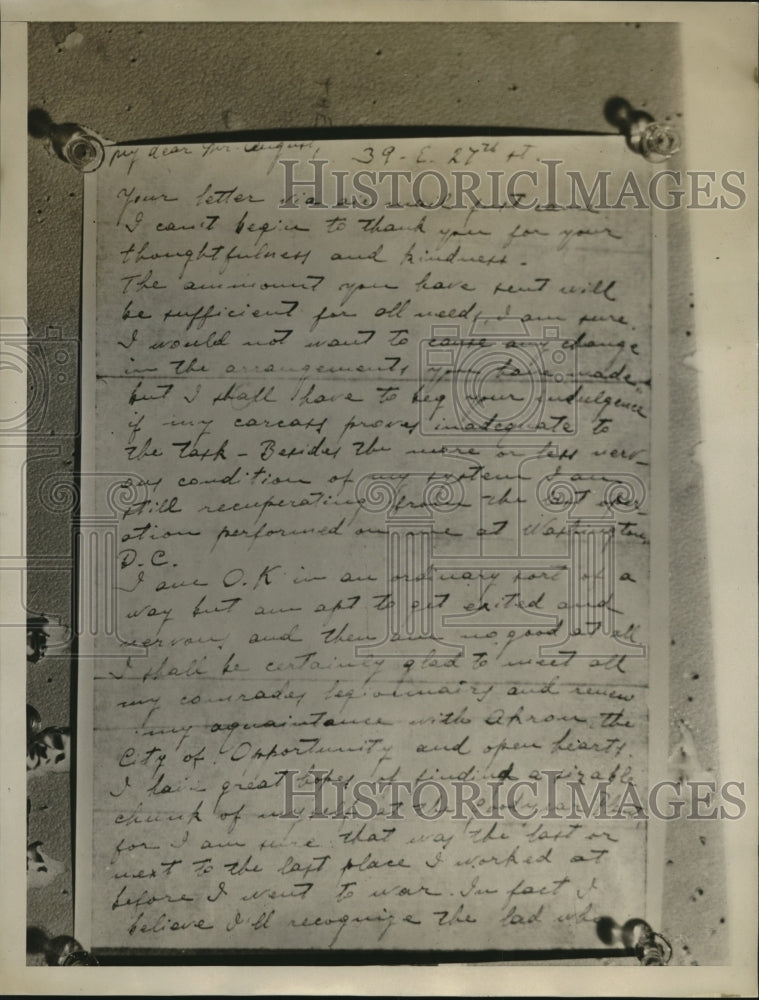 My dear Mr. August, 39 - E. 27th st.
Your letter via air mail just
HISTORICIMAGES
I can't begin to thank you for your
thoughtfulness and kindness.
The ammount you have sent will
be sufficient for all needs, I am sure.
I would not want to cause any change
in the arrangements you have made
but I shall have to beg your indulgence
if my carcass proves inadequate to
the task - Besides the more or less nerv-
ous condition of my system I am
still recuperating from the last oper-
ation performed on me at Washington,
D.C.
I am O.K. in an ordinary sort of a
way but am apt to get exited and
nervous, and then am no good at all
I shall be certainly glad to meet all
my comrades legionnairs and renew
my aquaintance with Akron, the
City of Opportunity and open hearts.
I have great hopes of finding a sizable
chunk of myself at the Goodyear
HISTORICIMAGES
for I am sure that was the last or
next to the last place I worked at
before I went to war. In fact I
believe I'll recognize the lad who